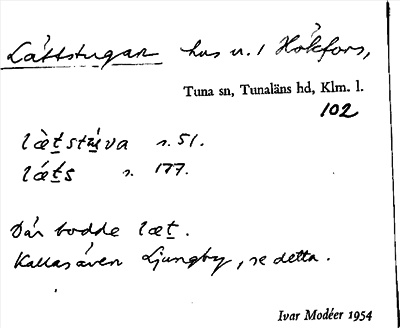 Låttstugan hus n. 1 Hökfors,
Tuna sn, Tunaläns hd, Klm. l.
102
læ̀t̠stu̠va s. 51.
lǽt̠s s. 177.
Där bodde læt̠.
Kallas även Ljungby, se detta.
Ivar Modéer 1954